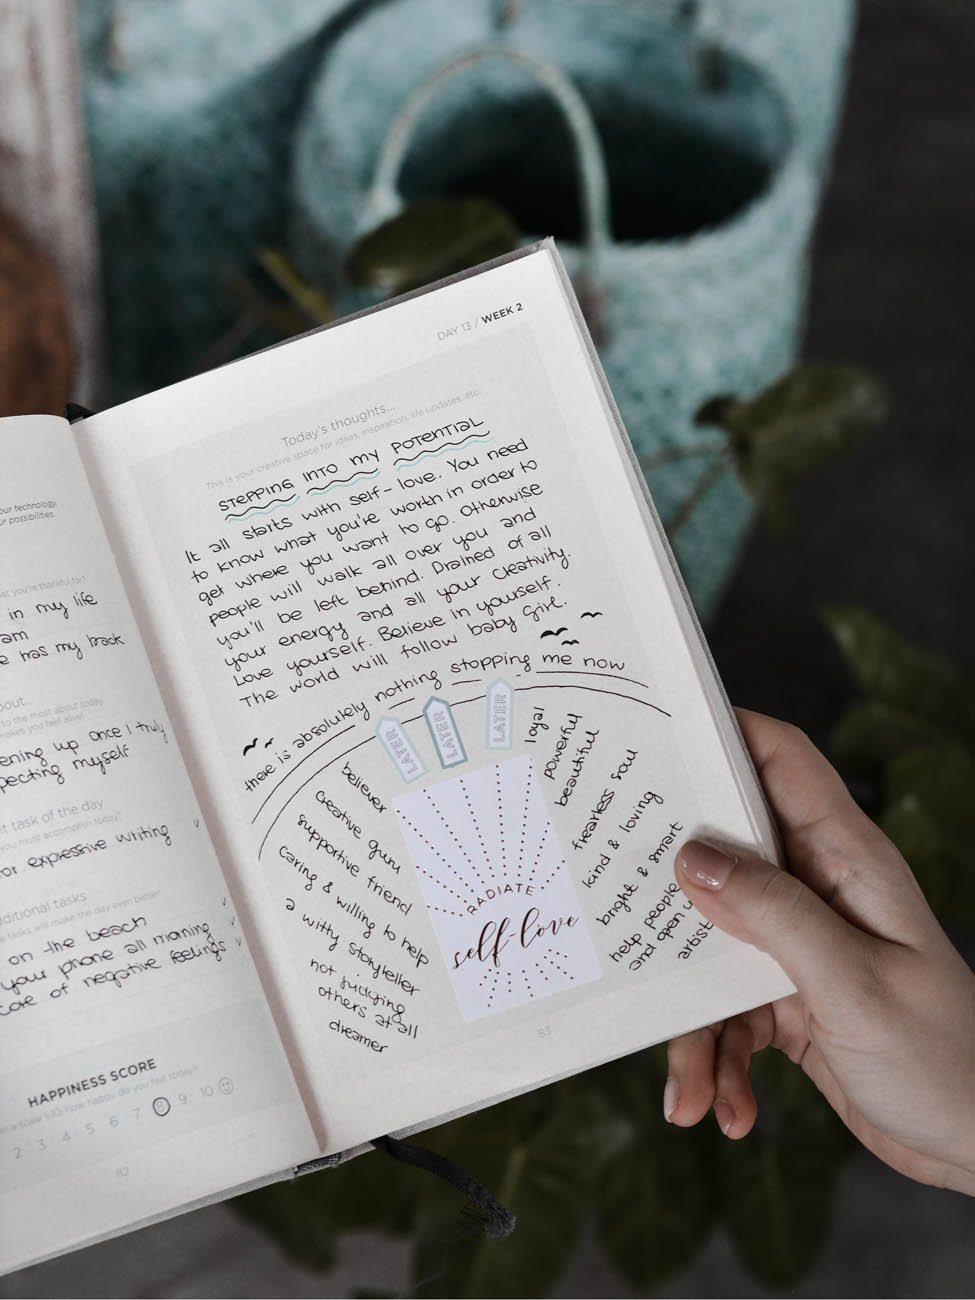 our technology.
ur possibilities.
what you're thankful for?
in my life
am
e has my back
bout...
to the most about today
makes you feel alive!
ening up once I truly
pecting myself
it task of the day
you most accomplish today?
or expressive writing
ditional tasks
tasks will make the day even better!
on the beach
your phone all morning
care of negative feelings
HAPPINESS SCORE
a scale 1-10, how happy do you feel today?
2 3 4 5 6 7 8 9 10
82
DAY 13 / WEEK 2
Today's thoughts...
This is your creative space for ideas, inspiration, life updates, etc.
STEPPING INTO MY POTENTIAL
It all starts with self-love. You need
to know what you're worth in order to
get where you want to go. Otherwise
people will walk all over you and
you'll be left behind. Drained of all
your energy and all your creativity.
Love yourself. Believe in yourself.
The world will follow baby girl.
there is absolutely nothing stopping me now
LATER
LATER
LATER
believer
creative guru
supportive friend
caring & willing to help
a witty storyteller
not judging
others at all
dreamer
RADIATE
self-love
loyal
powerful
beautiful
fearless soul
kind & loving
bright & smart
help people
and open u
artist
83